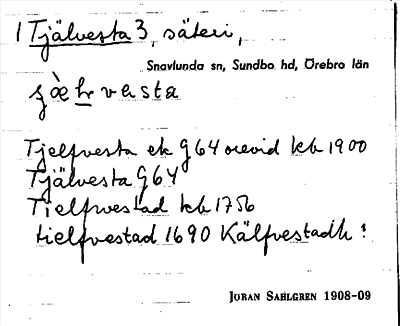 1 Tjälvesta 3, säteri,
Snavlunda sn, Sundbo hd, Örebro län
vesta
Tjelfvesta ek G64 orevid kb 1900
Tjälvesta G64
Tielfwestad kb 1756
tielfvestad 1690 Kälfvestadh ?
JÖRAN SAHLGREN 1908-09